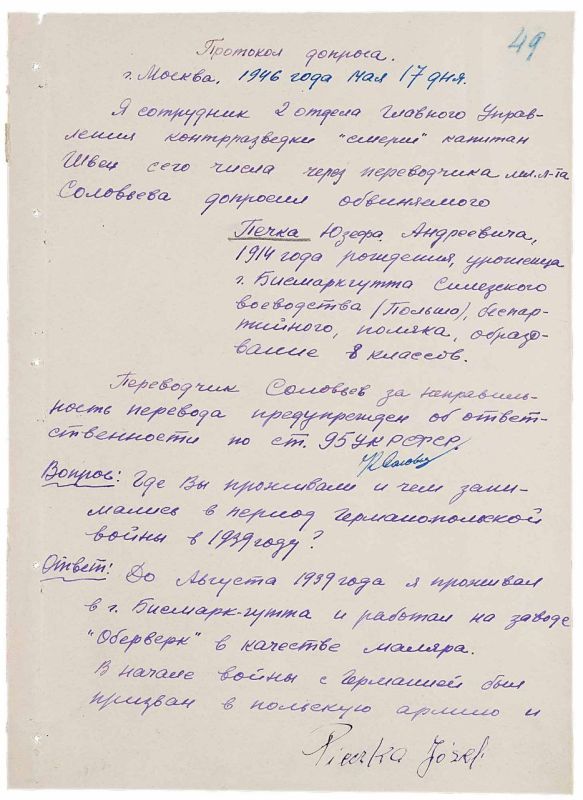 49
Протокол допроса.
г. Москва, 1946 года мая 17 дня.
Я сотрудник 2 отдела Главного Управ-
ления контрразведки "смерш" капитан
Швец сего числа через переводчика мл. л-та
Соловьева допросил обвиняемого
Печка Юзефа Андреевича,
1914 года рождения, уроженца
г. Бисмаркгутта Силезского
воеводства (Польша), беспар-
тийного, поляка, образо-
вание 8 классов.
Переводчик Соловьев за неправиль-
ность перевода предупрежден об ответ-
ственности по ст. 95 УК РСФСР.
Вопрос: Где Вы проживали и чем зани-
мались в период Германопольской
войны в 1939 году?
Ответ: До Августа 1939 года я проживал
в г. Бисмарк-гутта и работал на заводе
"Оберверк" в качестве маляра.
В начале войны с Германией был
призван в польскую армию и
Pieczka Józef